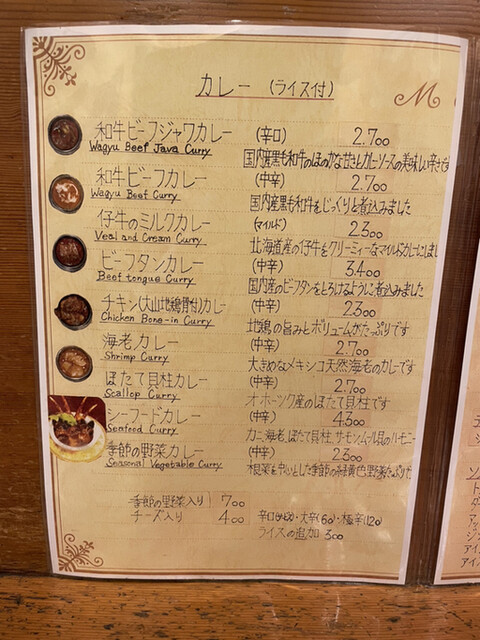 カレー (ライス付)
M
和牛ビーフジャワカレー (辛口) 2.700
Wagyu Beef Java Curry
国内産黒毛和牛のほのかな甘さとカレーソースの美味しい辛さ
和牛ビーフカレー (中辛) 2.700
Wagyu Beef Curry
国内産黒毛和牛をじっくりと煮込みました
仔牛のミルクカレー (マイルド) 2300
Veal and Cream Curry
北海道産の仔牛をクリーミィーなマイルドカレーにしまし
ビーフタンカレー (中辛) 3.400
Beef tongue Curry
国内産のビーフタンをとろけるように煮込みました
チキン(大山地鶏骨付)カレー (中辛) 2300
Chicken Bone-in Curry
地鶏の旨みとボリュームがたっぷりです
海老カレー (中辛) 2.700
Shrimp Curry
大きめなメキシコ天然海老のカレーです
ほたて貝柱カレー (中辛) 2.700
Scallop Curry
オホーツク産のほたて貝柱です
シーフードカレー (中辛) 4.300
Seafood Curry
カニ、海老、ほたて貝柱、サーモン、ムール貝のハーモニー
季節の野菜カレー (中辛) 2300
Seasonal Vegetable Curry
根菜を中心とした季節の緑黄色野菜たっぷりで
季節の野菜入り 700
チーズ入り 400
辛口・大辛(60)・極辛(120)
ライスの追加 300